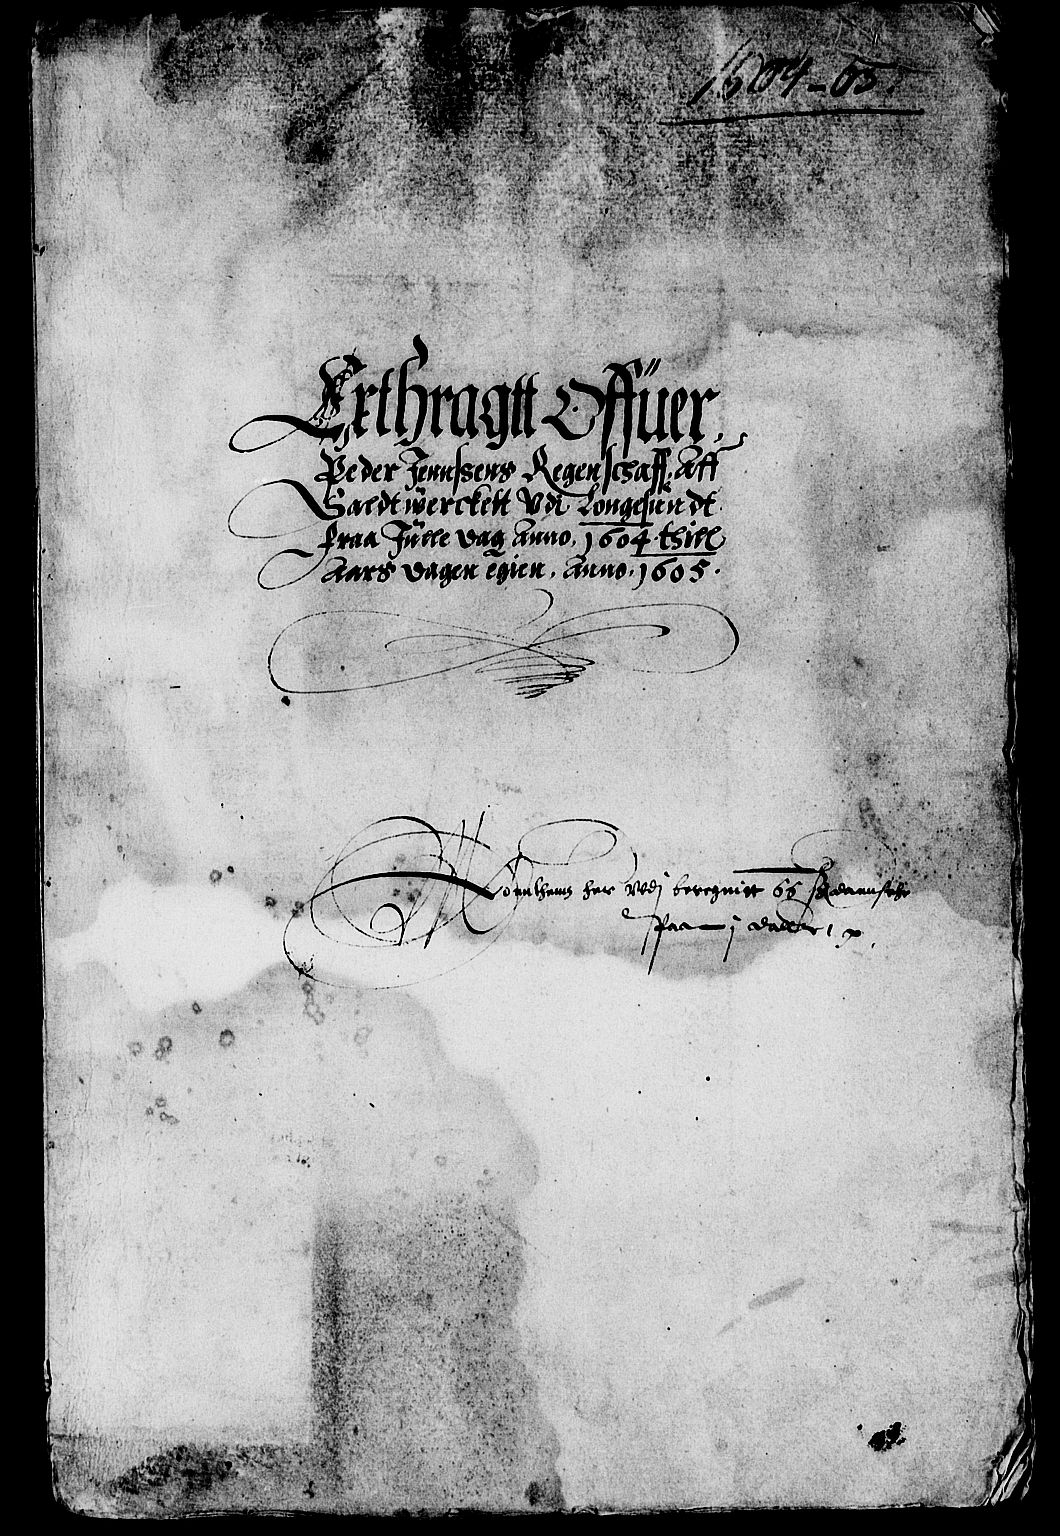 1604-05.
Exthragtt Offüer
Peder Jennssens Regenschaff. Aff
Saldtwerckett Vdi Longesundt
fraa Jülle dag Anno. 1604 thill
Aars dagen egien. Anno. 1605.
her Vdj beregnitt 66
paa j daller